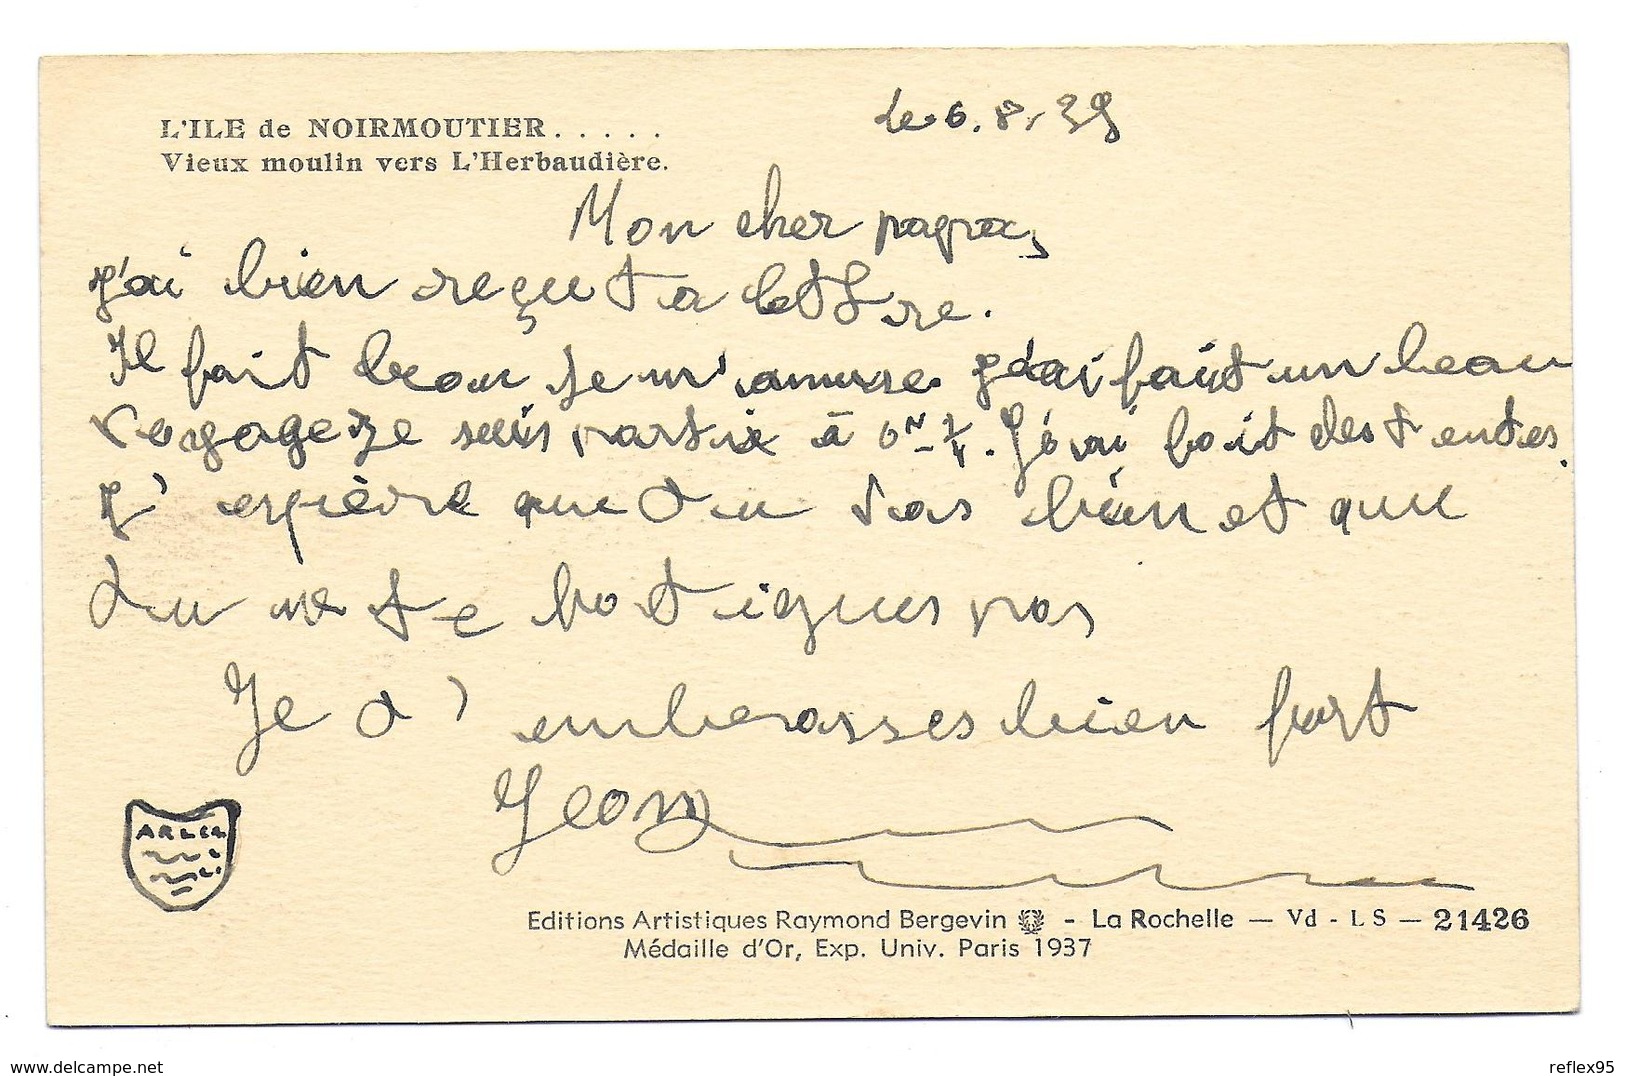 L'ILE de NOIRMOUTIER.....
Vieux moulin vers L'Herbaudière.
le 6.8.39
Mon cher papa,
J'ai bien reçu ta lettre.
Il fait beau je m'amuse j'ai fait un beau
voyage je suis partie à 6 H - 1/4. J'ai fait des tentes.
J' espière que tu vas bien et que
tu ne te fatigues pas
Je t' embrasses bien fort
Jean
ARLEA
Editions Artistiques Raymond Bergevin - La Rochelle — Vd - LS — 21426
Médaille d'Or, Exp. Univ. Paris 1937
www.delcampe.net
reflex95